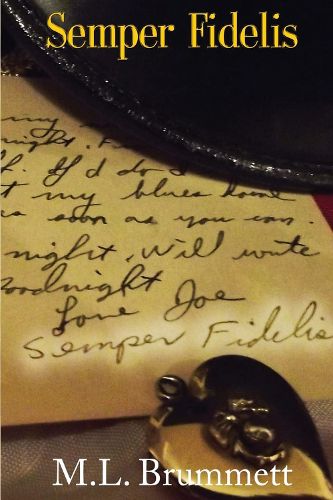 Semper Fidelis
my
night.
ff. I'd do
t my blues home
as soon as you can.
night, Will write
Goodnight
Love Joe
Semper Fidelis
M.L. Brummett